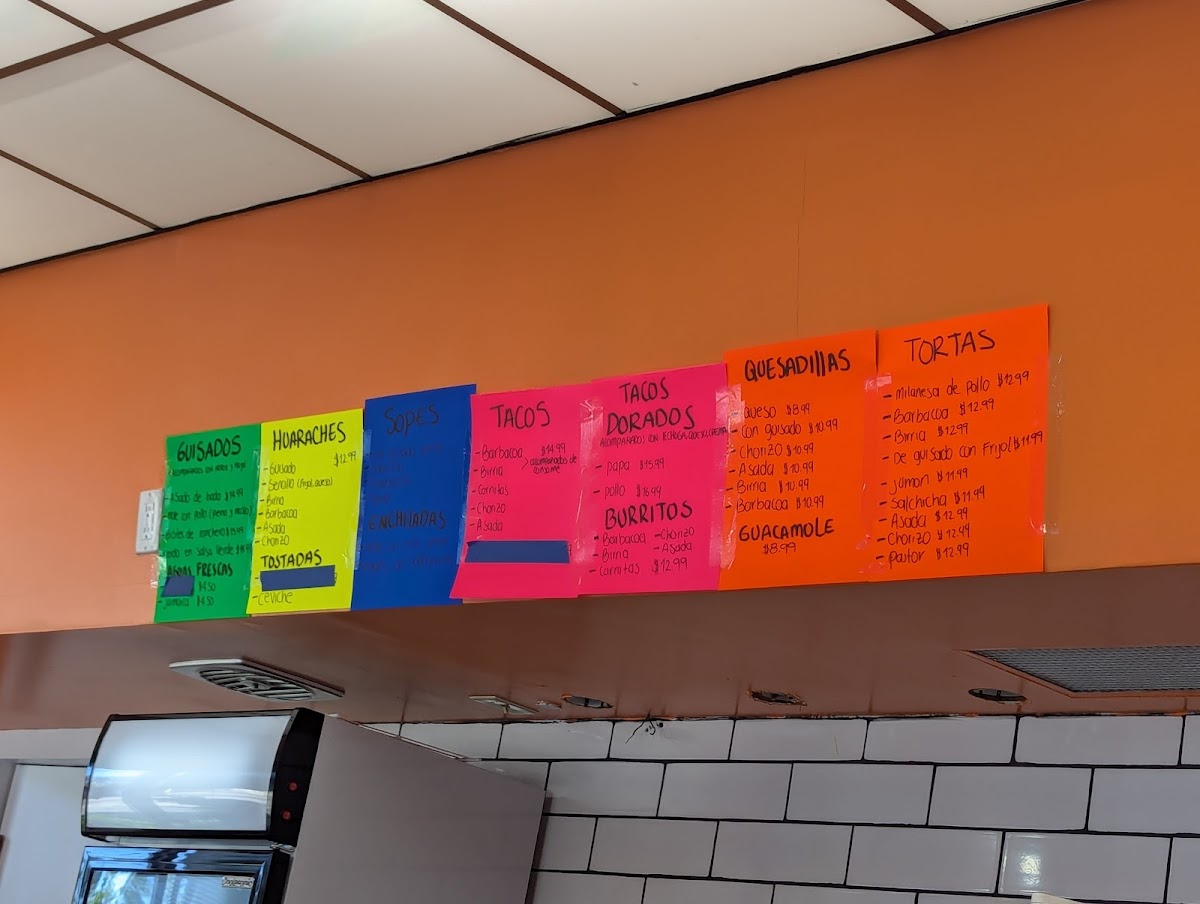 GUISADOS
ACOMPAÑADOS CON ARROZ Y
- Asado de boda $14.99
mole con Pollo (pierna y muslo)
- Bistec de ranchero $13.99
en Salsa Verde
AGUAS FRESCAS
$4.50
- Jamaica $4.50
HUARACHES
- Guisado $12.99
- Sencillo (Frijol, queso)
- Birria
- Barbacoa
- Asada
- Chorizo
TOSTADAS
- CEVICHE
SOPES
ENCHILADAS
TACOS
- Barbacoa $14.99
- Birria
acompañados de
consome
- Carnitas
- Chorizo
- Asada
TACOS
DORADOS
ACOMPAÑADOS CON LECHUGA, QUESO, CREMA
- papa $15.99
- pollo $16.99
BURRITOS
- Barbacoa - Chorizo
- Birria - Asada
- Carnitas $12.99
QUESADIllAS
- queso $8.99
- Con guisado $10.99
- Chorizo $10.99
- Asada $10.99
- Birria $10.99
- Barbacoa $10.99
GUACAMOLE
$8.99
TORTAS
- Milanesa de Pollo $12.99
- Barbacoa $12.99
- Birria $12.99
- De guisado con Frijol $11.99
- Jamon $11.99
- Salchicha $11.99
- Asada $12.99
- Chorizo $12.99
- Pastor $12.99